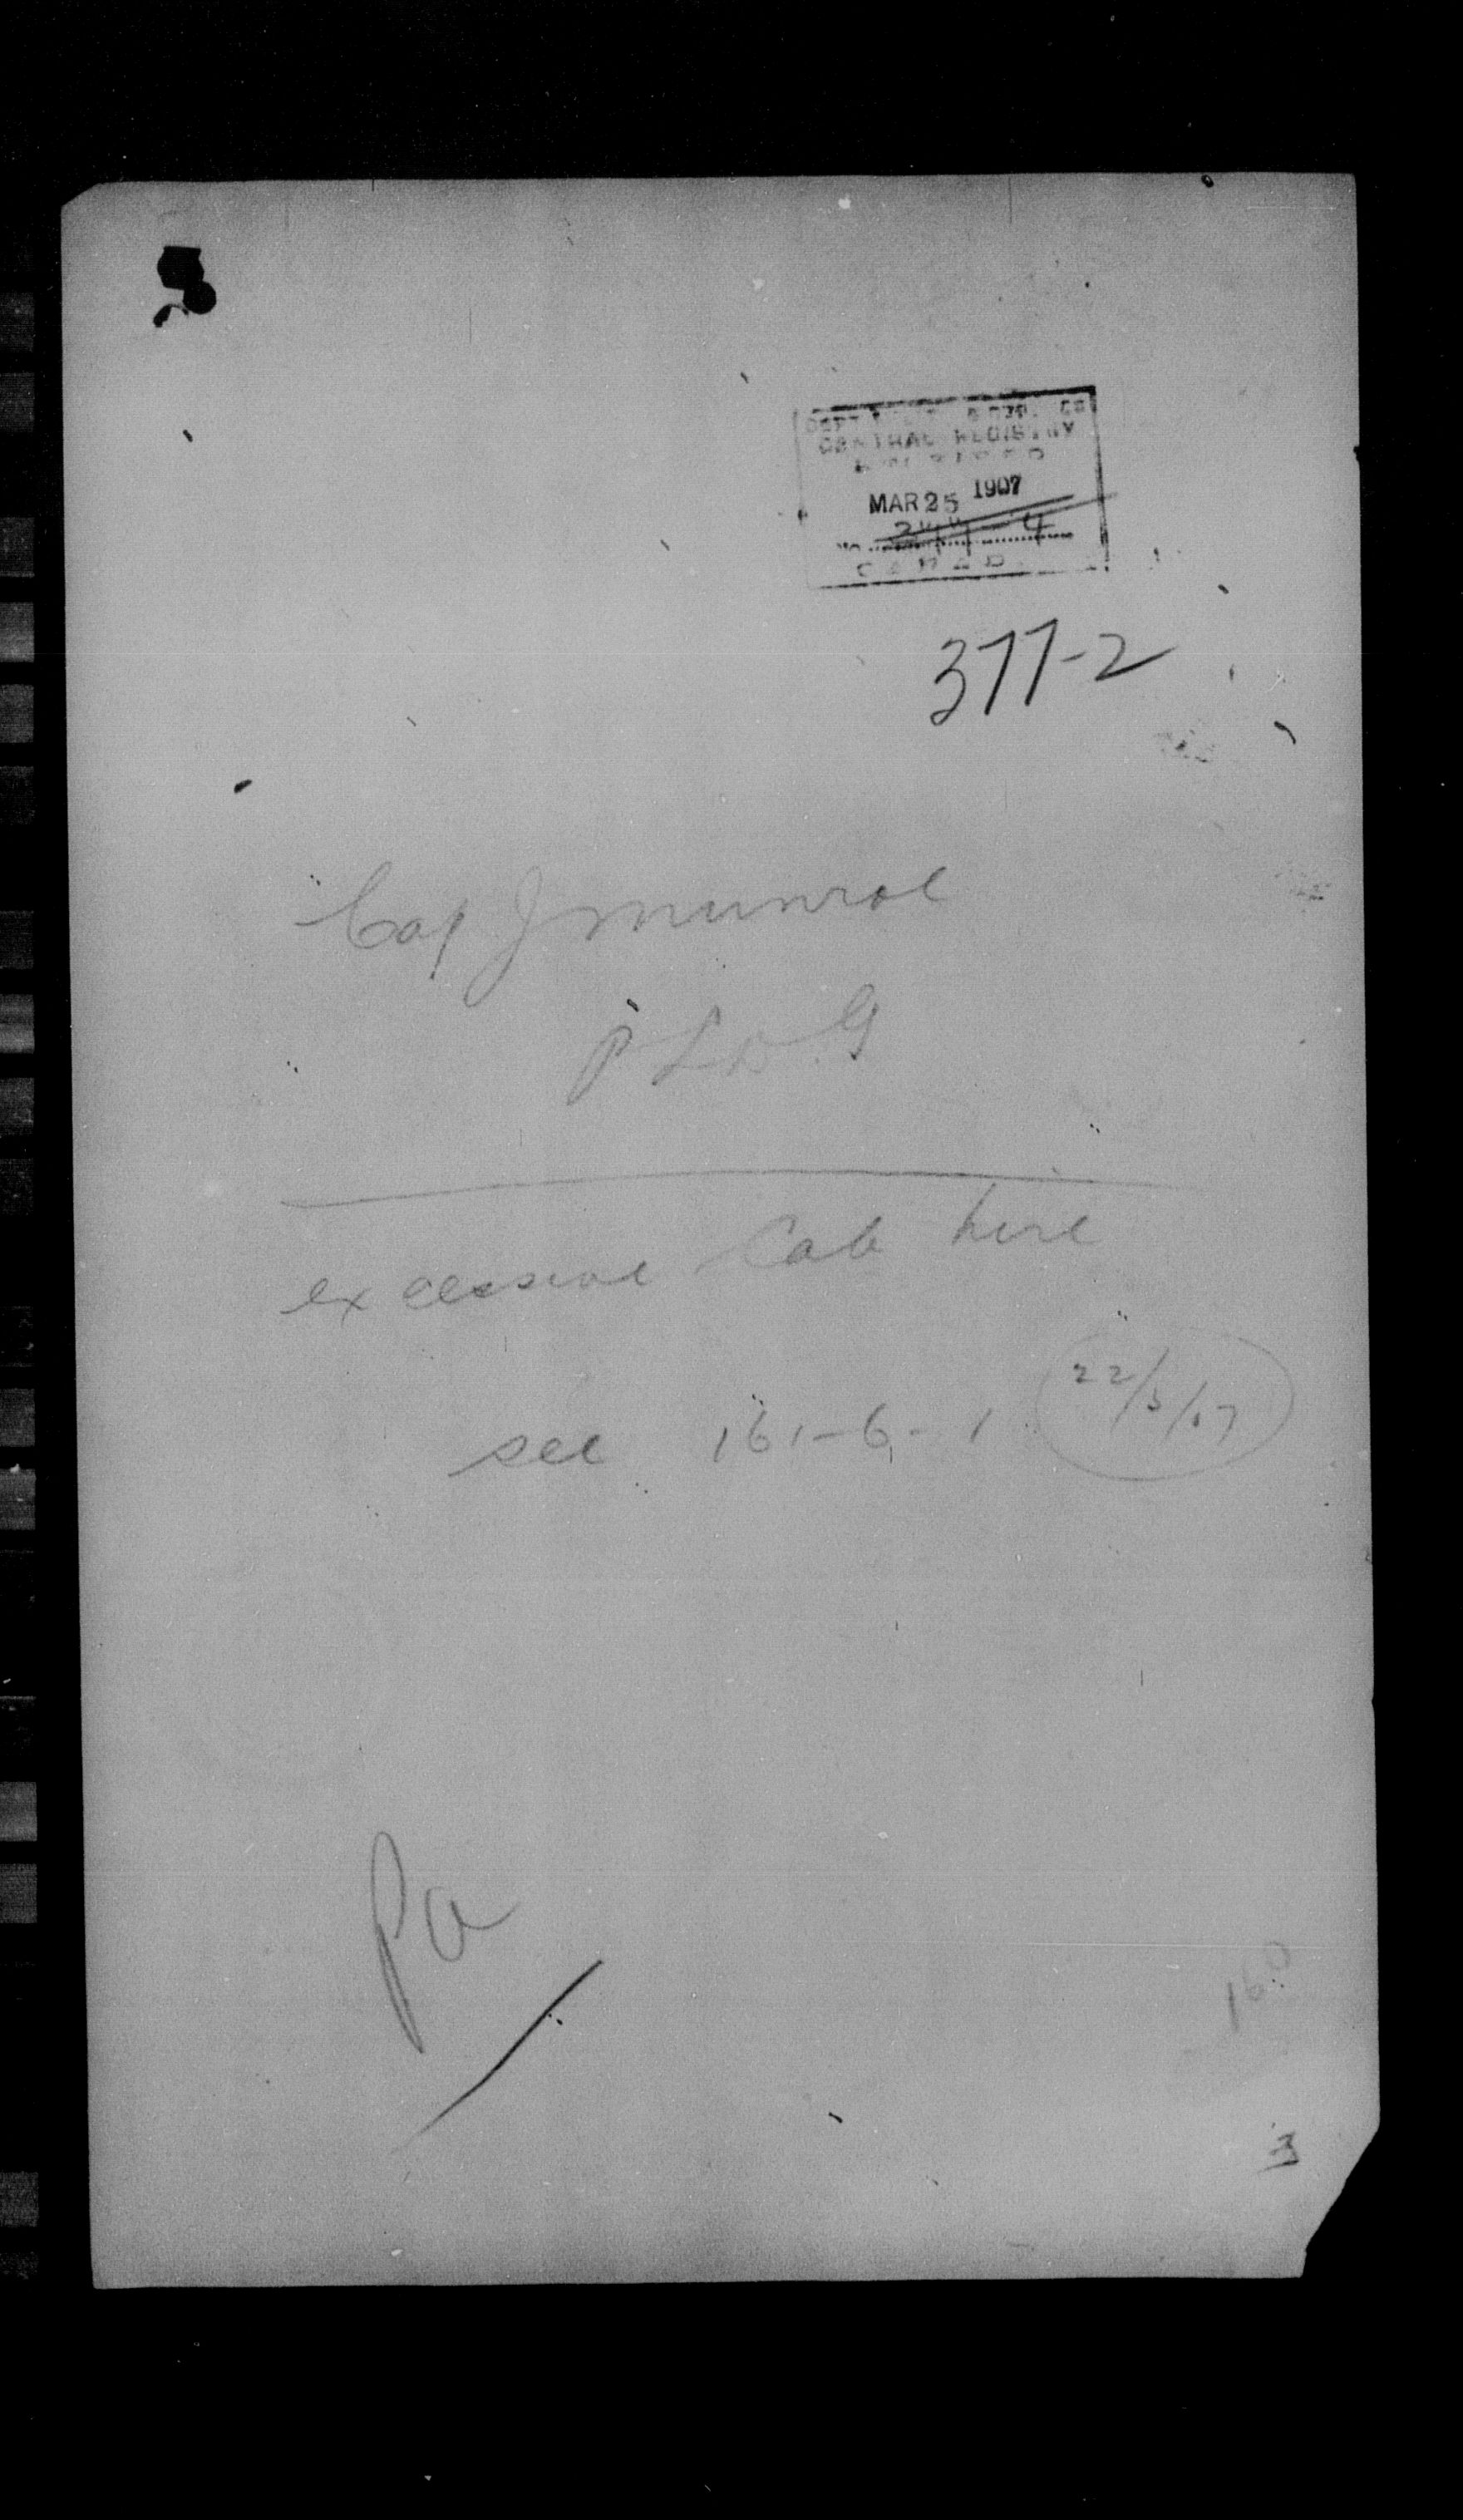 CENTRAL REGISTRY
MAR 25 1907
No
CANADA
377-2
Cap J Munroe
P L D G
excessive Cab hire
see 161-6-1 22/3/07
Pa
160
3